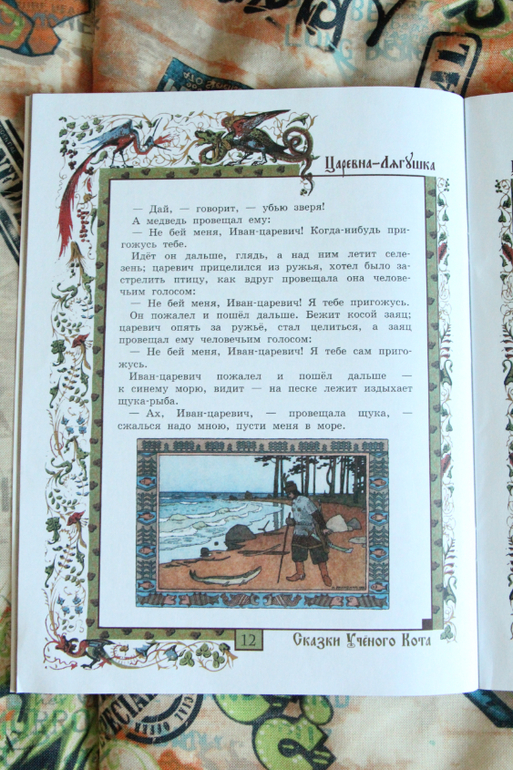 Царевна-Лягушка
— Дай, — говорит, — убью зверя!
А медведь провещал ему:
— Не бей меня, Иван-царевич! Когда-нибудь при-
гожусь тебе.
Идёт он дальше, глядь, а над ним летит селе-
зень; царевич прицелился из ружья, хотел было за-
стрелить птицу, как вдруг провещала она человe-
чьим голосом:
— Не бей меня, Иван-царевич! Я тебе пригожусь.
Он пожалел и пошёл дальше. Бежит косой заяц;
царевич опять за ружьё, стал целиться, а заяц
провещал ему человечьим голосом:
— Не бей меня, Иван-царевич! Я тебе сам приго-
жусь.
Иван-царевич пожалел и пошёл дальше —
к синему морю, видит — на песке лежит издыхает
щука-рыба.
— Ах, Иван-царевич, — провещала щука, —
сжалься надо мною, пусти меня в море.
12
Сказки Учёного Кота
SPECIAL